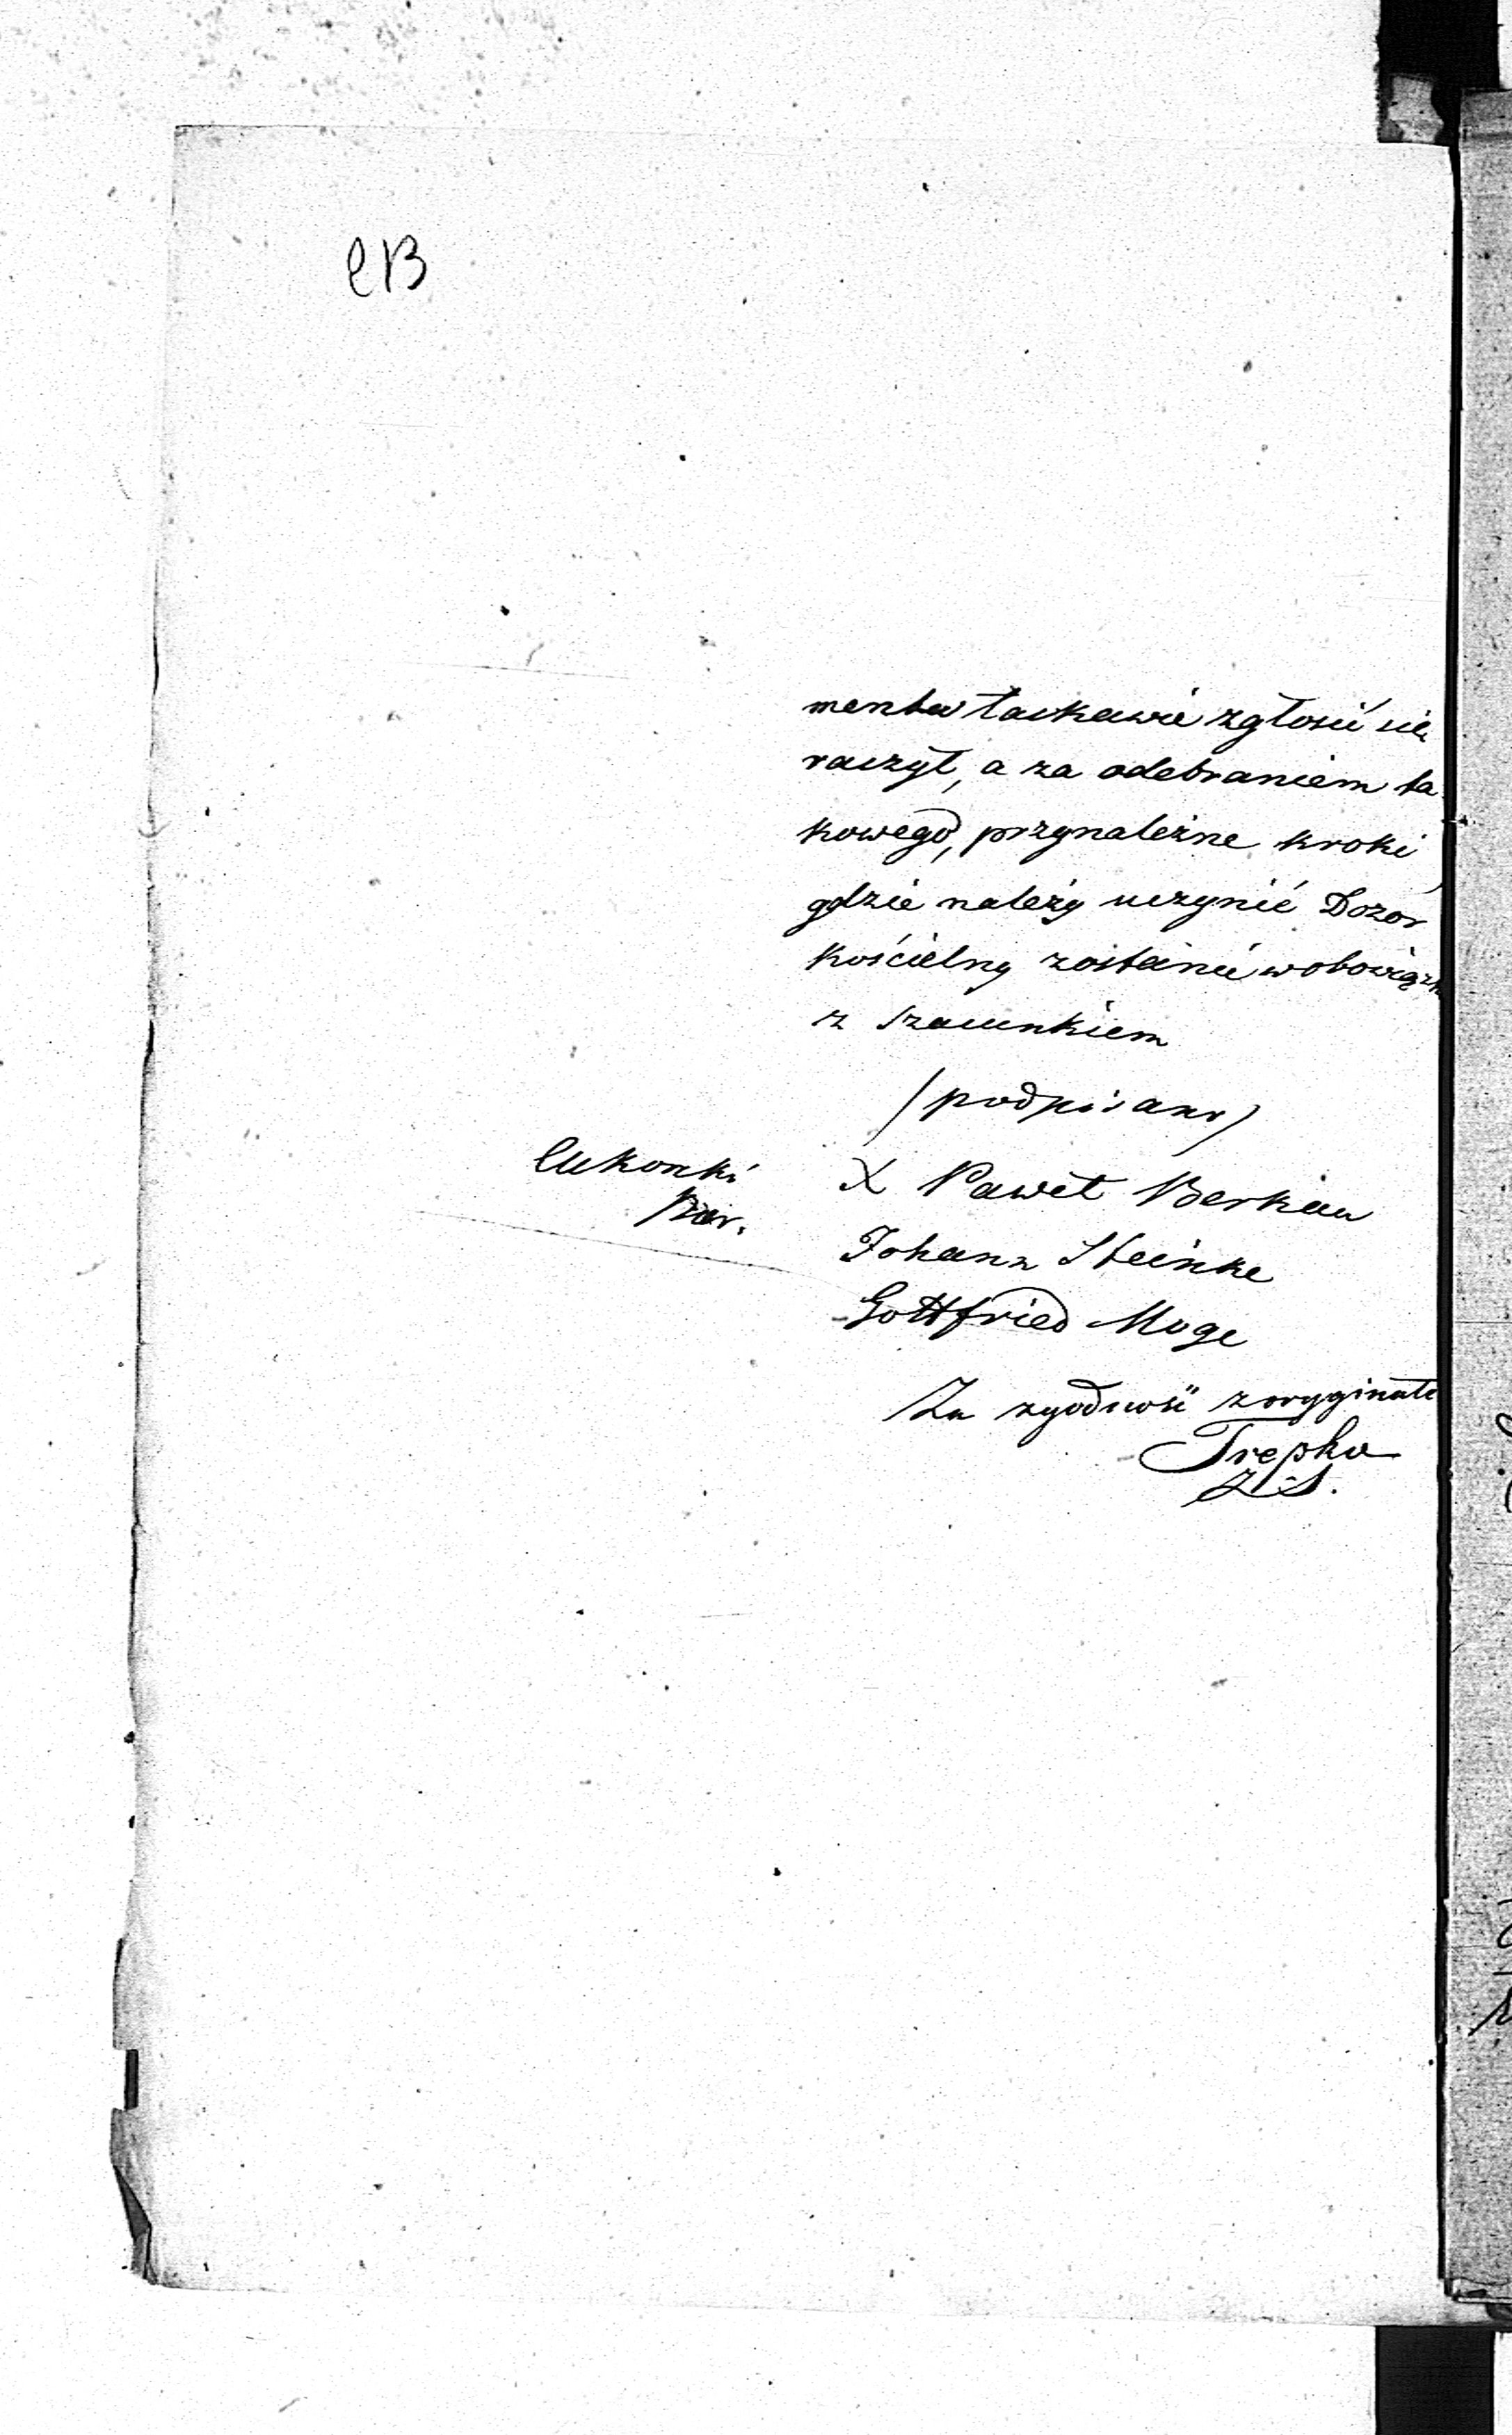 menta łaskawie zgłosić się
raczył, a za odebraniem ta
kowego, przynależne kroki
gdzie należy uczynić Dozór
kościelny zostanie w obowiązk
z szacunkiem
(podpisano)
X Paweł Berkau
Johann Steinke
Gottfried Moge
Za zgodność z oryginałe
Trepka
Z S.